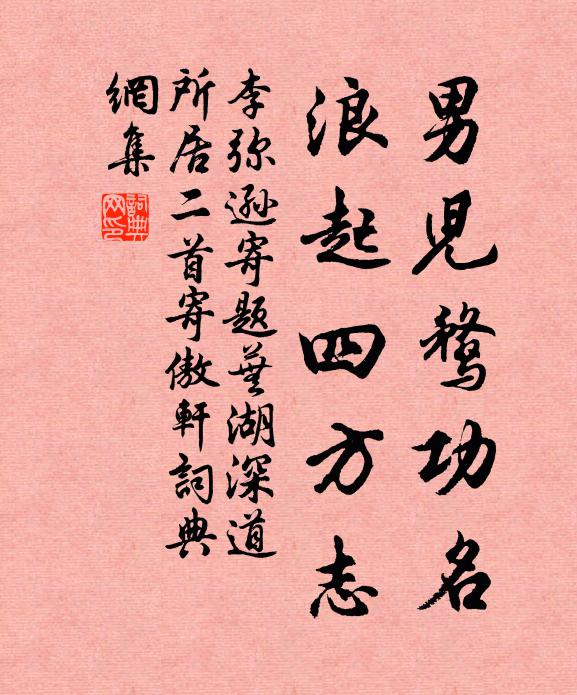 男児騖功名
浪起四方志
李弥遜寄題蕪湖深道
所居二首寄傲軒詞典
網集
詞典
网印